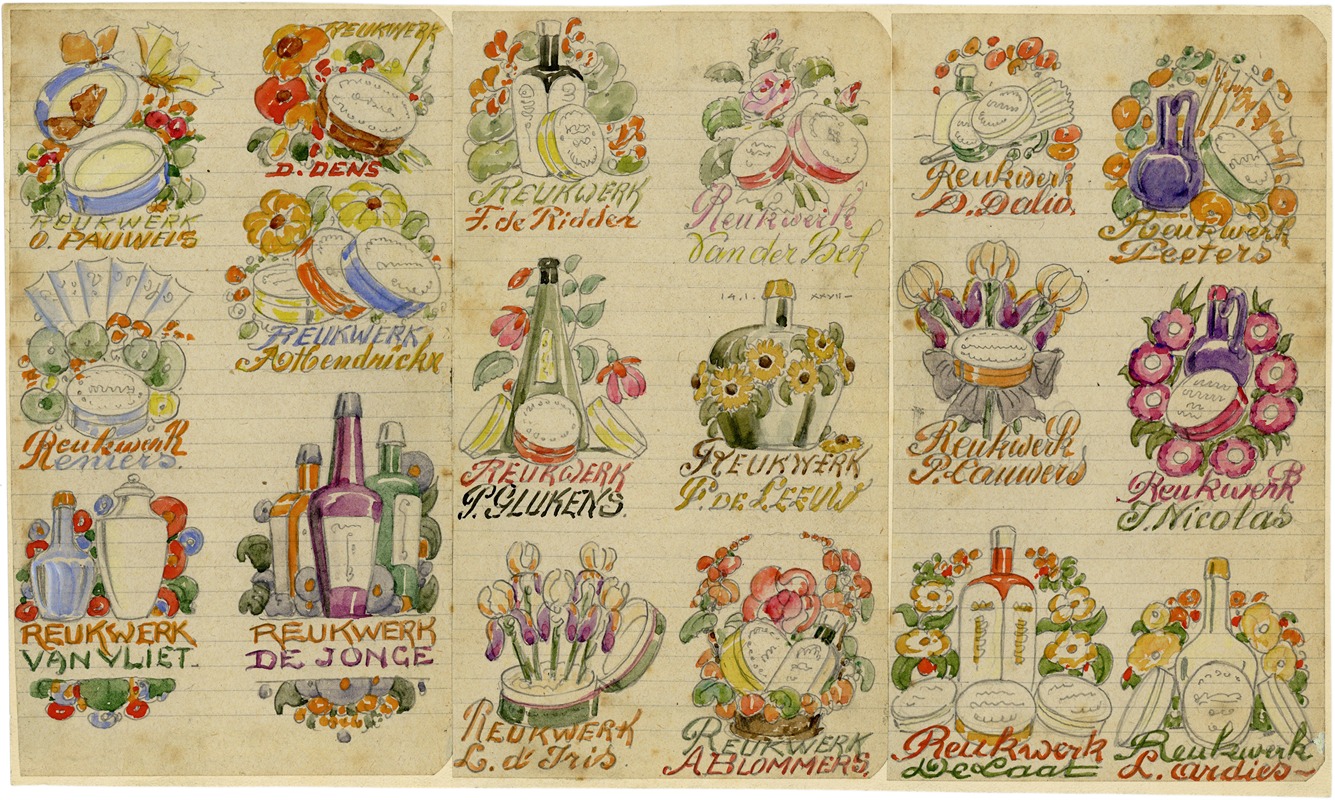 REUKWERK
O. PAUWELS
REUKWERK
D. DENS
Reukwerk
Reniers.
REUKWERK
A. Hendrickx
REUKWERK
VAN VLIET
REUKWERK
DE JONGE
REUKWERK
F. de Ridder
Reukwerk
Van der Bek
REUKWERK
P. GLUKENS.
14.1. XXVII-
REUKWERK
P. DE LEEUW
REUKWERK
L. d'Iris
REUKWERK
A BLOMMERS.
Reukwerk
D. Daliv.
Reukwerk
Peeters
Reukwerk
P. Cauwers
Reukwerk
J. Nicolas
Reukwerk
De Laat
Reukwerk
L. Ardies-